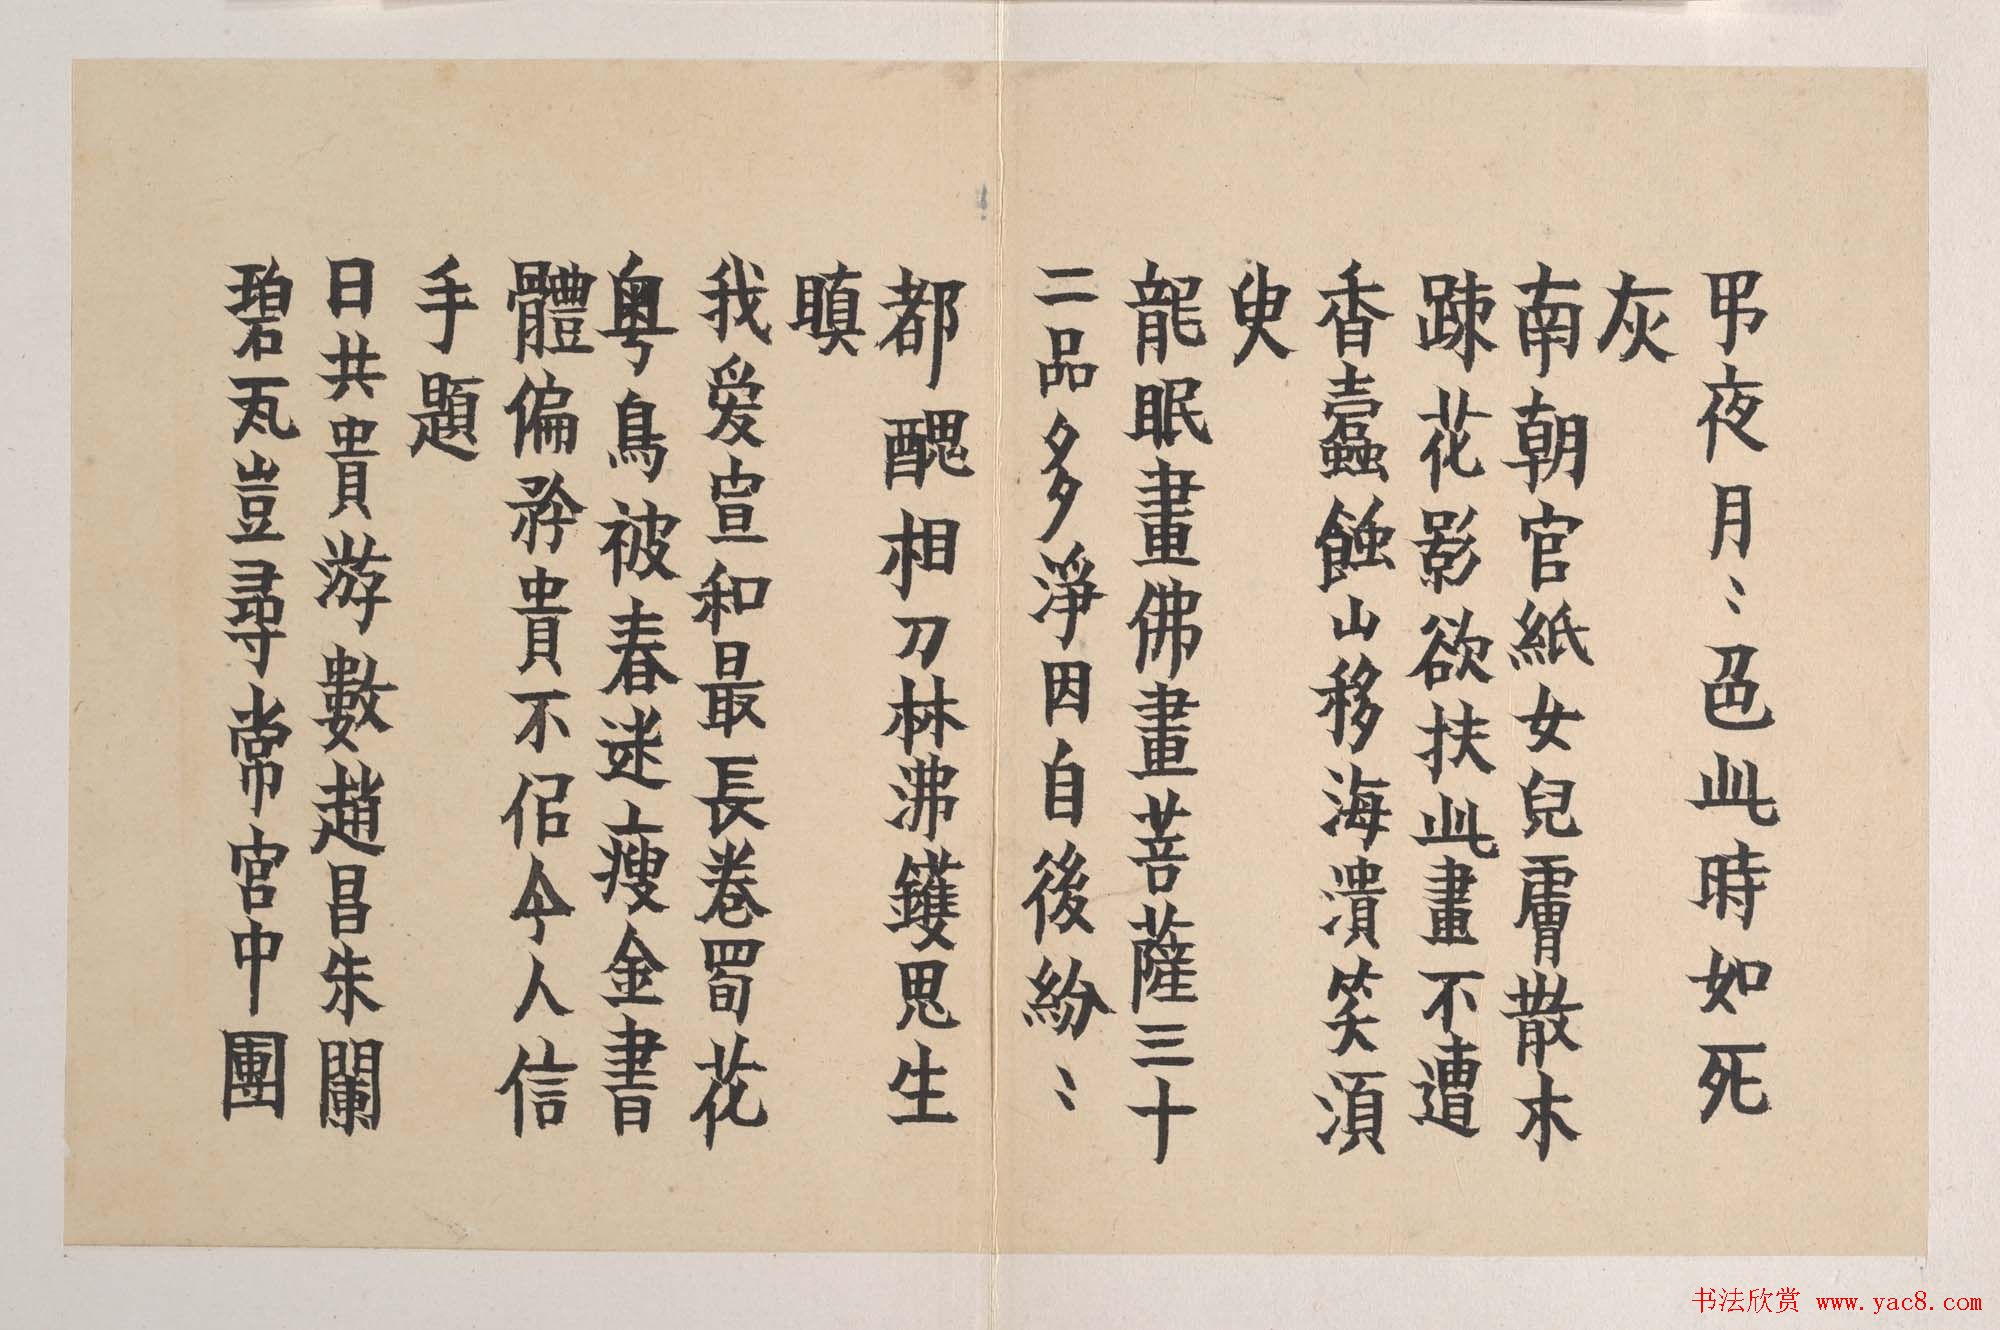 弔夜月〻色此時如死
灰
南朝官紙女兒膚散木
疎花影欲扶此畫不遭
香蠹蝕山移海潰笑須
臾
龍眠畫佛畫菩薩三十
二品多淨因自後紛〻
都醜相刀林沸鑊思生
瞋
我爱宣和最長卷蜀花
粵鳥被春迷瘦金書
體偏矜貴不佀今人信
手題
日共貴游數趙昌朱闌
碧瓦豈尋常宮中團
书法欣赏 www.yac8.com